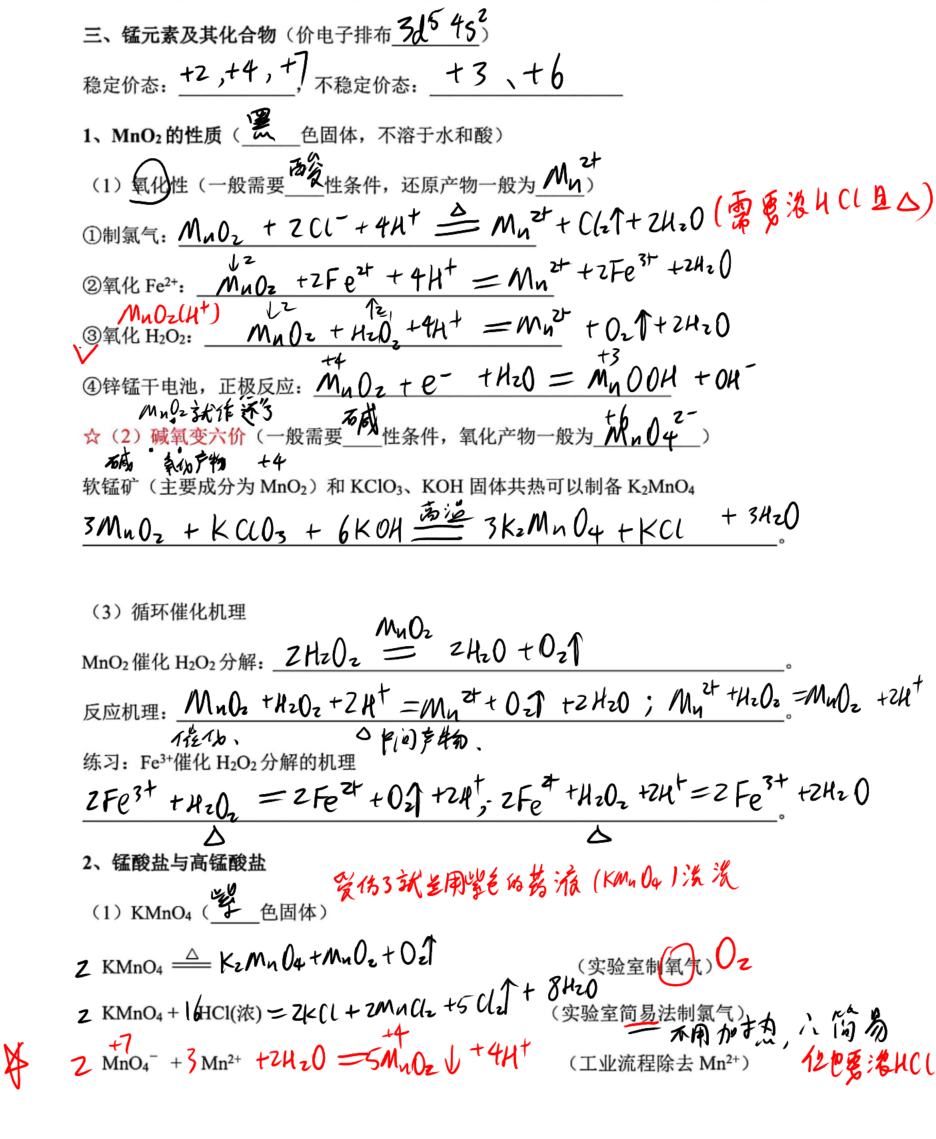 三、锰元素及其化合物（价电子排布 3d⁵4s²）
稳定价态：+2,+4,+7，不稳定价态：+3、+6
1、MnO₂的性质（黑色固体，不溶于水和酸）
（1）氧化性（一般需要酸性条件，还原产物一般为 Mn²⁺）
①制氯气：MnO₂ + 2Cl⁻ + 4H⁺ ≜ Mn²⁺ + Cl₂↑ + 2H₂O (需要浓HCl且△)
↓2
②氧化 Fe²⁺：MnO₂ + 2Fe²⁺ + 4H⁺ = Mn²⁺ + 2Fe³⁺ + 2H₂O
MnO₂(H⁺) ↓2 ↑2
③氧化 H₂O₂：MnO₂ + H₂O₂ + 4H⁺ = Mn²⁺ + O₂↑ + 2H₂O
+4 +3
④锌锰干电池，正极反应：MnO₂ + e⁻ + H₂O = MnOOH + OH⁻
MnO₂就作还了
☆（2）碱氧变六价（一般需要碱性条件，氧化产物一般为 +6 MnO₄²⁻）
碱 氧化产物 +4
软锰矿（主要成分为 MnO₂）和 KClO₃、KOH 固体共热可以制备 K₂MnO₄
3MnO₂ + KClO₃ + 6KOH 高温══ 3K₂MnO₄ + KCl + 3H₂O。
（3）循环催化机理
MnO₂催化 H₂O₂分解：2H₂O₂ MnO₂══ 2H₂O + O₂↑。
反应机理：MnO₂ + H₂O₂ + 2H⁺ = Mn²⁺ + O₂↑ + 2H₂O ; Mn²⁺ + H₂O₂ = MnO₂ + 2H⁺。
催化、 △中间产物、
练习：Fe³⁺催化 H₂O₂分解的机理
2Fe³⁺ + H₂O₂ = 2Fe²⁺ + O₂↑ + 2H⁺; 2Fe²⁺ + H₂O₂ + 2H⁺ = 2Fe³⁺ + 2H₂O。
△ △
2、锰酸盐与高锰酸盐
受伤了就是用紫色的药液(KMnO₄)洗洗
（1）KMnO₄（紫色固体）
2 KMnO₄ ≜ K₂MnO₄ + MnO₂ + O₂↑ （实验室制氧气）O₂
2 KMnO₄ + 16HCl(浓) = 2KCl + 2MnCl₂ + 5Cl₂↑ + 8H₂O （实验室简易法制氯气）
不用加热，∴简易
+7 +4
☆ 2 MnO₄⁻ + 3 Mn²⁺ + 2H₂O = 5MnO₂↓ + 4H⁺ （工业流程除去 Mn²⁺） 但也要浓HCl